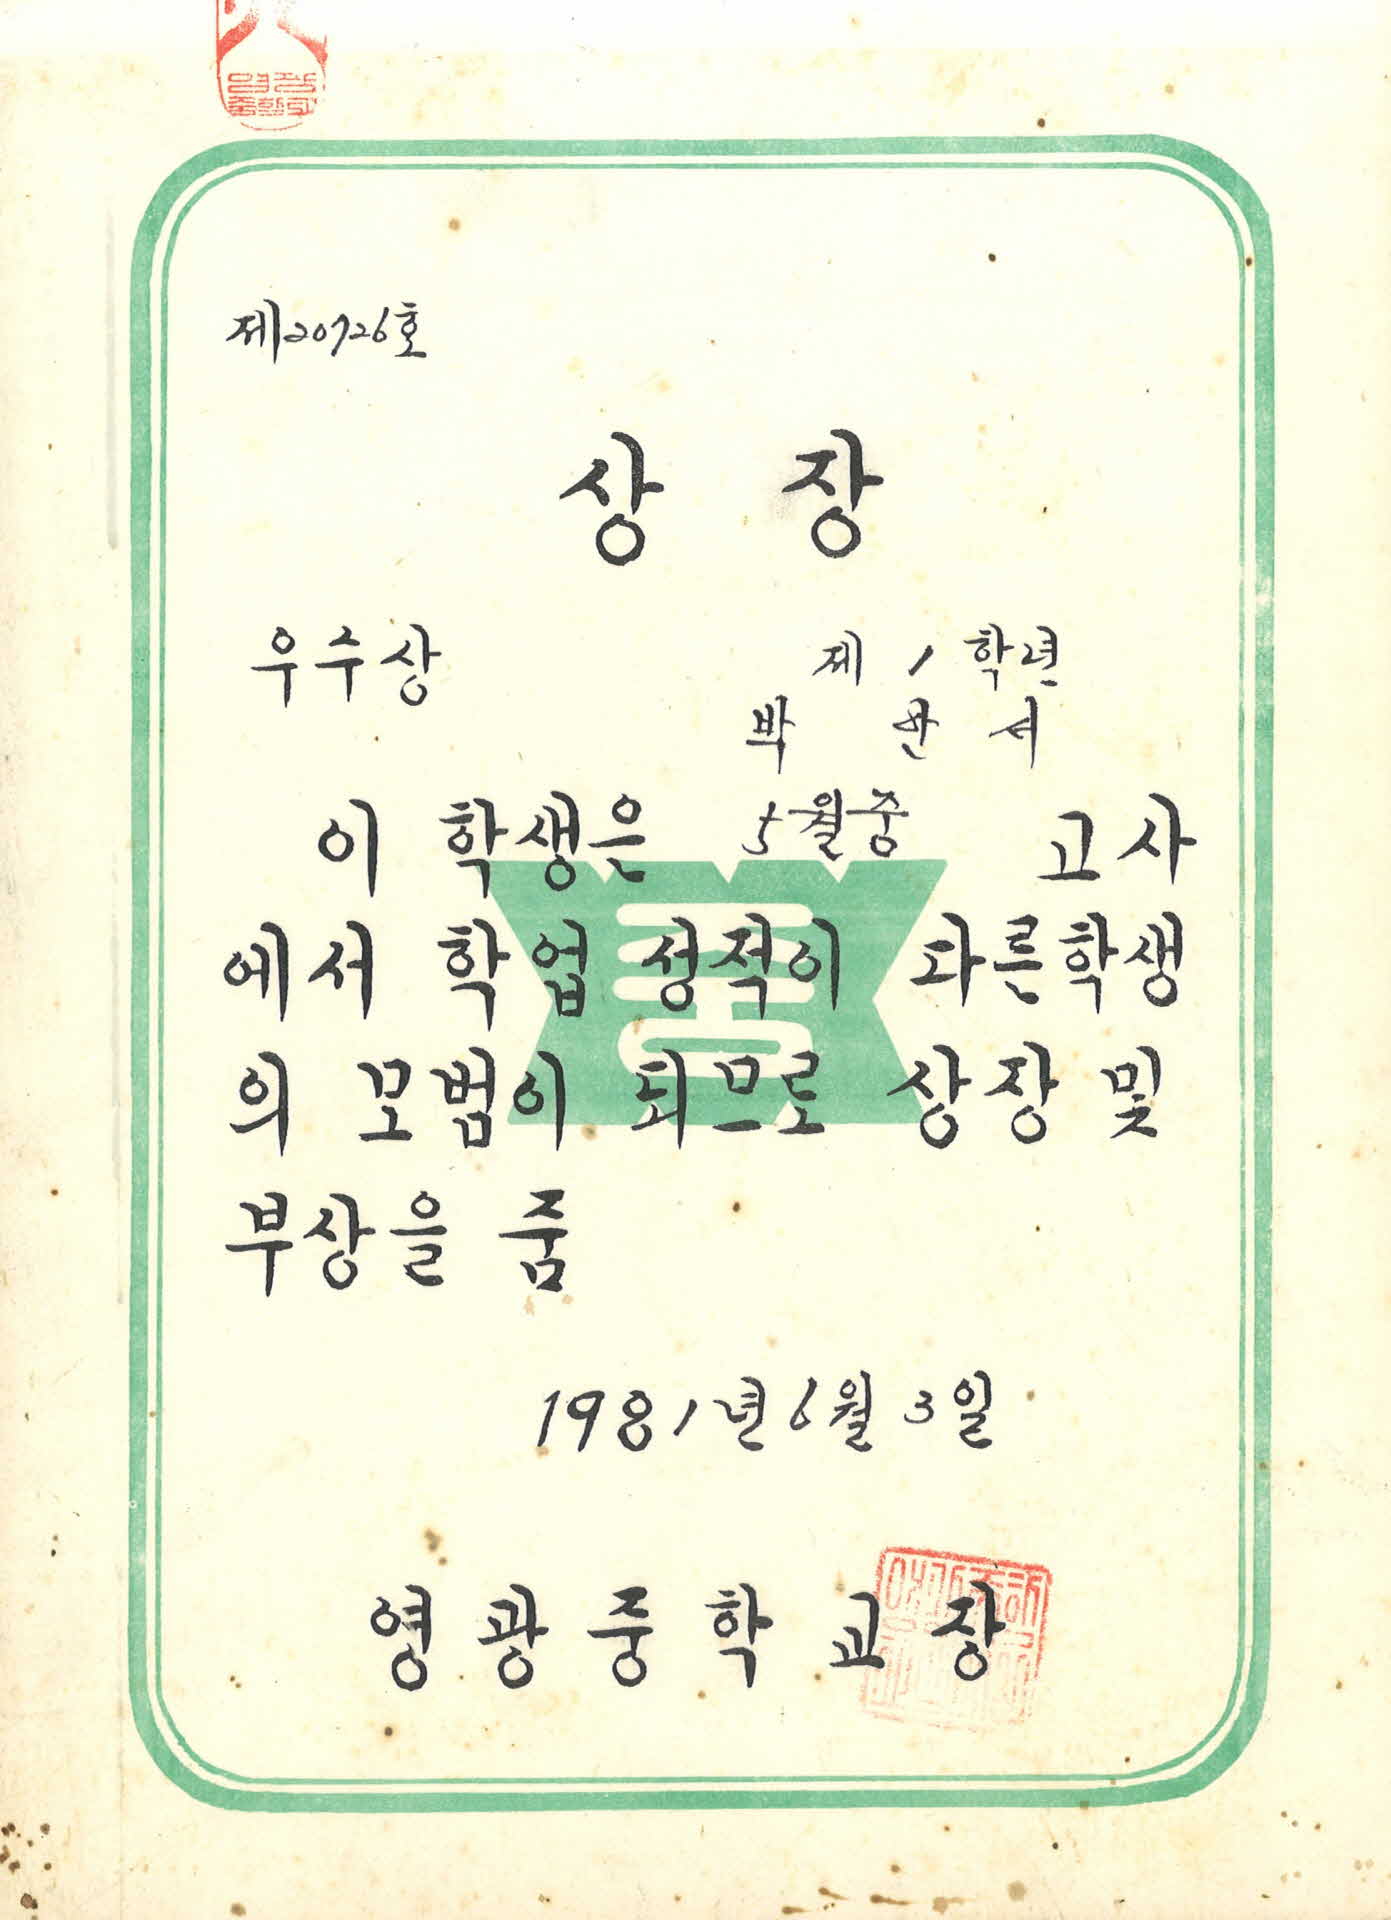 제20726호
상 장
우수상
제 1 학년
박 서
이 학생은 5월중 고사
에서 학업 성적이 다른학생
의 모범이 되므로 상장 및
부상을 줌
1981년 6월 3일
영광중학교장